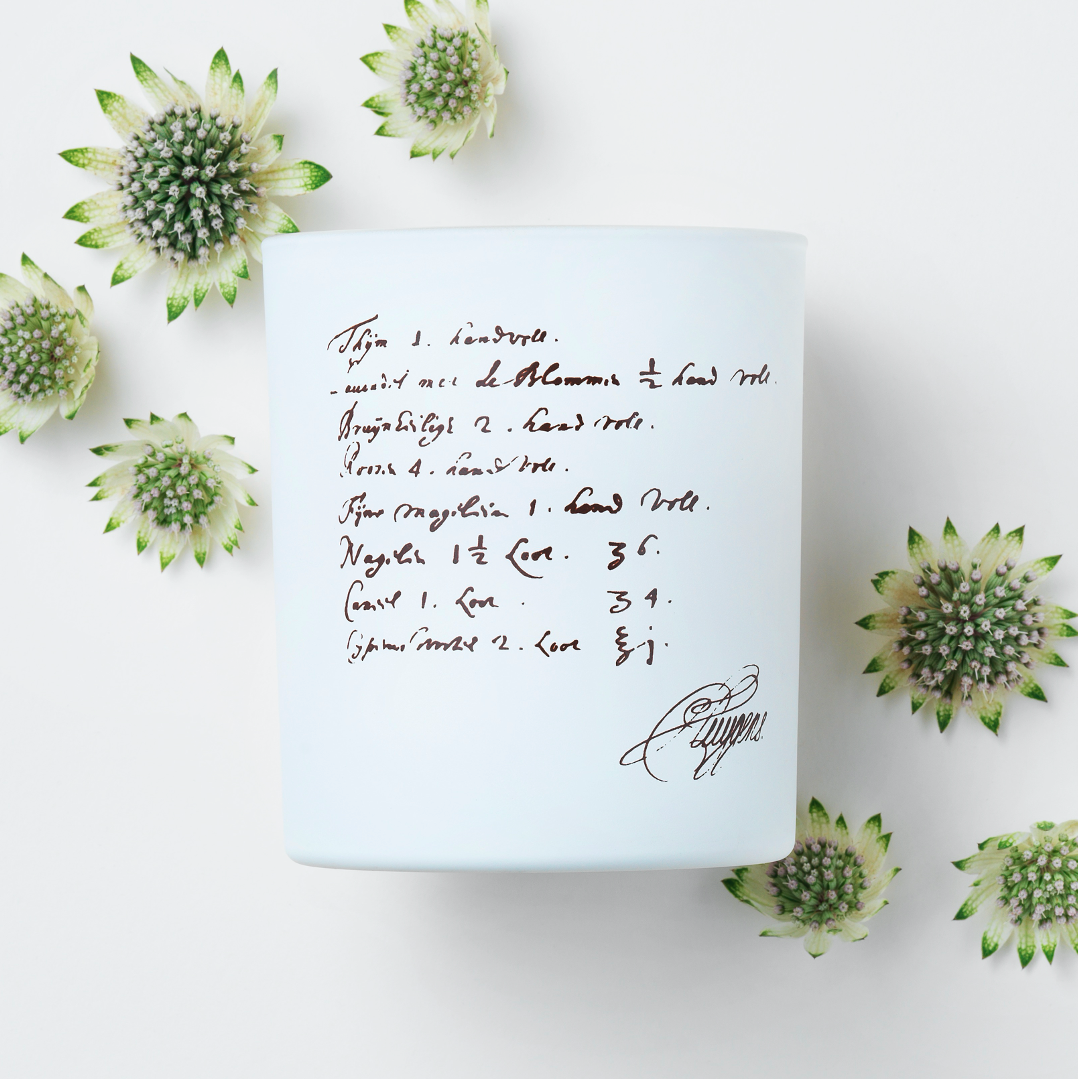 Thijm 1. handvoll.
met de Blommen ½ hand voll.
Bruynheilige 2. hand voll.
Roosen 4. hand voll.
Fijne magelein 1. hand voll.
Nagelen 1½ Loot. ʒ 6.
Caneel 1. Loot. ʒ 4.
2. Loot ℥ j.
Huygens.